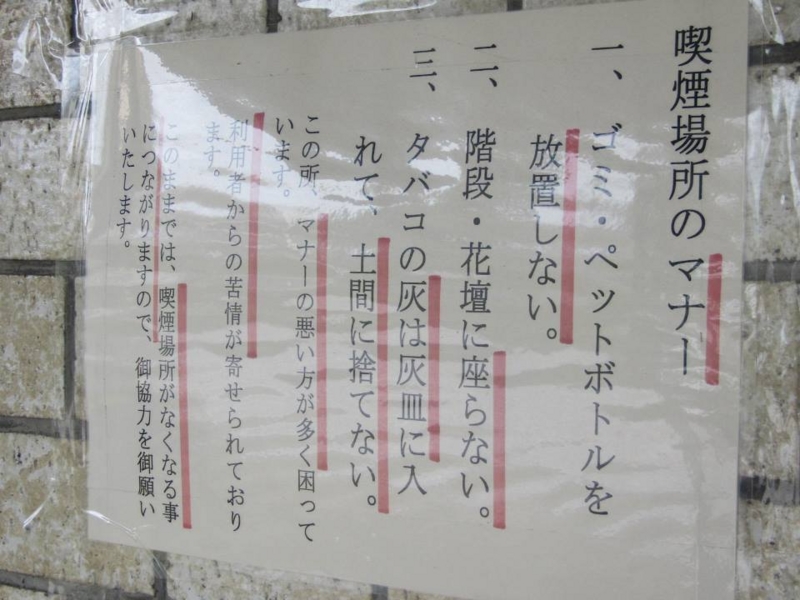 喫煙場所のマナー
一、ゴミ・ペットボトルを
放置しない。
二、階段・花壇に座らない。
三、タバコの灰は灰皿に入
れて、土間に捨てない。
この所、マナーの悪い方が多く困って
います。
利用者からの苦情が寄せられており
ます。
このままでは、喫煙場所がなくなる事
につながりますので、御協力を御願い
いたします。